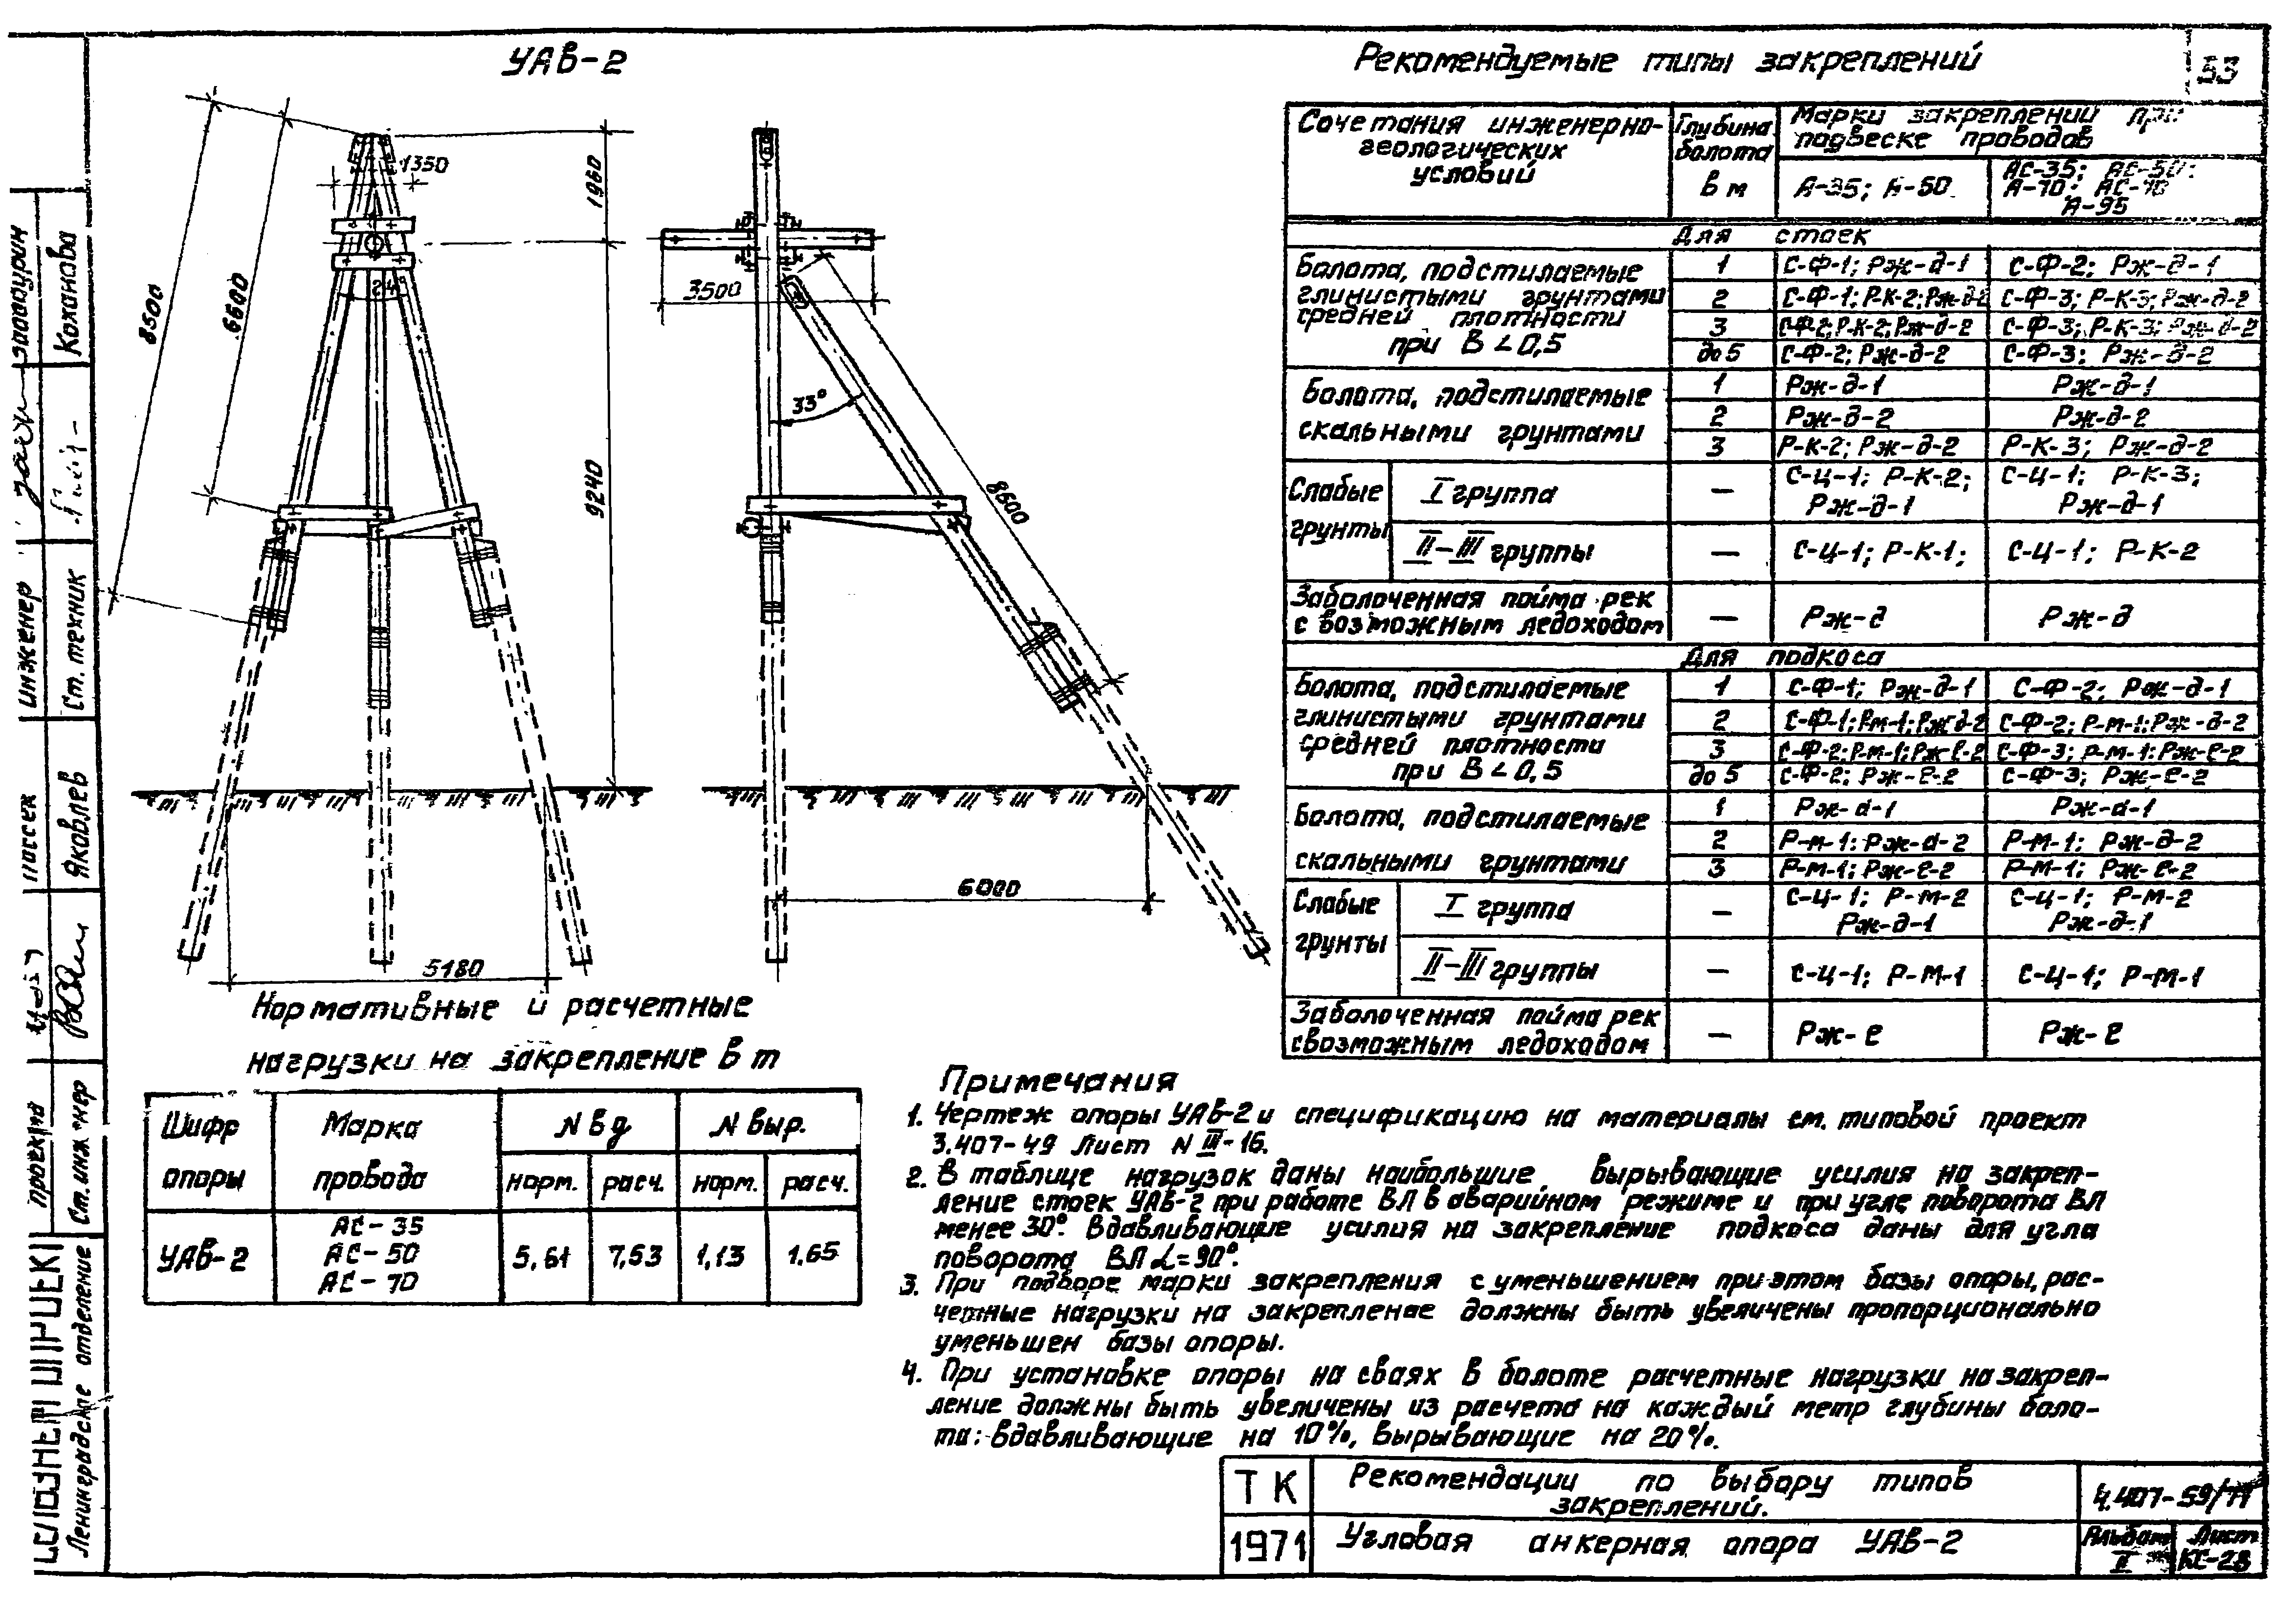 УАв-2
Рекомендуемые типы закреплений
33
1350
1960
8500
6600
24°
9240
5180
3500
33°
8600
6000
Сочетания инженерно-
геологических
условий
Глубина
болота
в м
Марки закреплений при
подвеске проводов
А-35; А-50
АС-35; АС-50;
А-70; АС-70
А-95
Для стоек
Болота, подстилаемые
глинистыми грунтами
средней плотности
при В < 0,5
1 С-Ф-1; Рж-д-1 С-Ф-2; Рж-д-1
2 С-Ф-1; Р-К-2; Рж-д-2 С-Ф-3; Р-К-3; Рж-д-2
3 С-Ф-2; Р-К-2; Рж-д-2 С-Ф-3; Р-К-3; Рж-д-2
до 5 С-Ф-2; Рж-д-2 С-Ф-3; Рж-д-2
Болота, подстилаемые
скальными грунтами
1 Рж-д-1 Рж-д-1
2 Рж-д-2 Рж-д-2
3 Р-К-2; Рж-д-2 Р-К-3; Рж-д-2
Слабые
грунты
I группа — С-Ц-1; Р-К-2; С-Ц-1; Р-К-3;
Рж-д-1 Рж-д-1
II-III группы — С-Ц-1; Р-К-1; С-Ц-1; Р-К-2
Заболоченная пойма рек
с возможным ледоходом
— Рж-д Рж-д
Для подкоса
Болота, подстилаемые
глинистыми грунтами
средней плотности
при В < 0,5
1 С-Ф-1; Рж-д-1 С-Ф-2; Рж-д-1
2 С-Ф-1; Р-м-1; Рж-д-2 С-Ф-2; Р-м-1; Рж-д-2
3 С-Ф-2; Р-м-1; Рж-е-2 С-Ф-3; Р-м-1; Рж-е-2
до 5 С-Ф-2; Рж-е-2 С-Ф-3; Рж-е-2
Болота, подстилаемые
скальными грунтами
1 Рж-д-1 Рж-д-1
2 Р-м-1; Рж-д-2 Р-М-1; Рж-д-2
3 Р-м-1; Рж-е-2 Р-М-1; Рж-е-2
Слабые
грунты
I группа — С-Ц-1; Р-М-2 С-Ц-1; Р-М-2
Рж-д-1 Рж-д-1
II-III группы — С-Ц-1; Р-М-1 С-Ц-1; Р-М-1
Заболоченная пойма рек
с возможным ледоходом
— Рж-е Рж-е
Нормативные и расчетные
нагрузки на закрепление в т
Шифр
опоры
Марка
провода
N вд N выр.
норм. расч. норм. расч.
УАв-2
АС-35
АС-50
АС-70
5,61 7,53 1,13 1,65
Примечания
1. Чертеж опоры УАВ-2 и спецификацию на материалы см. типовой проект
3.407-49 Лист N III-16.
2. В таблице нагрузок даны наибольшие вырывающие усилия на закреп-
ление стоек УАВ-2 при работе ВЛ в аварийном режиме и при угле поворота ВЛ
менее 30°. Вдавливающие усилия на закрепление подкоса даны для угла
поворота ВЛ α=90°.
3. При подборе марки закрепления с уменьшением при этом базы опоры, рас-
четные нагрузки на закрепление должны быть увеличены пропорционально
уменьшен базы опоры.
4. При установке опоры на сваях в болоте расчетные нагрузки на закреп-
ление должны быть увеличены из расчета на каждый метр глубины боло-
та: вдавливающие на 10%, вырывающие на 20%.
ТК
1971
Рекомендации по выбору типов
закреплений.
Угловая анкерная опора УАВ-2
4.407-59/71
Альбом
II
Лист
КС-28
Ленинградское отделение
проекта
Ст. инженер
Яковлев
инженер
Ст. техник
Коханова